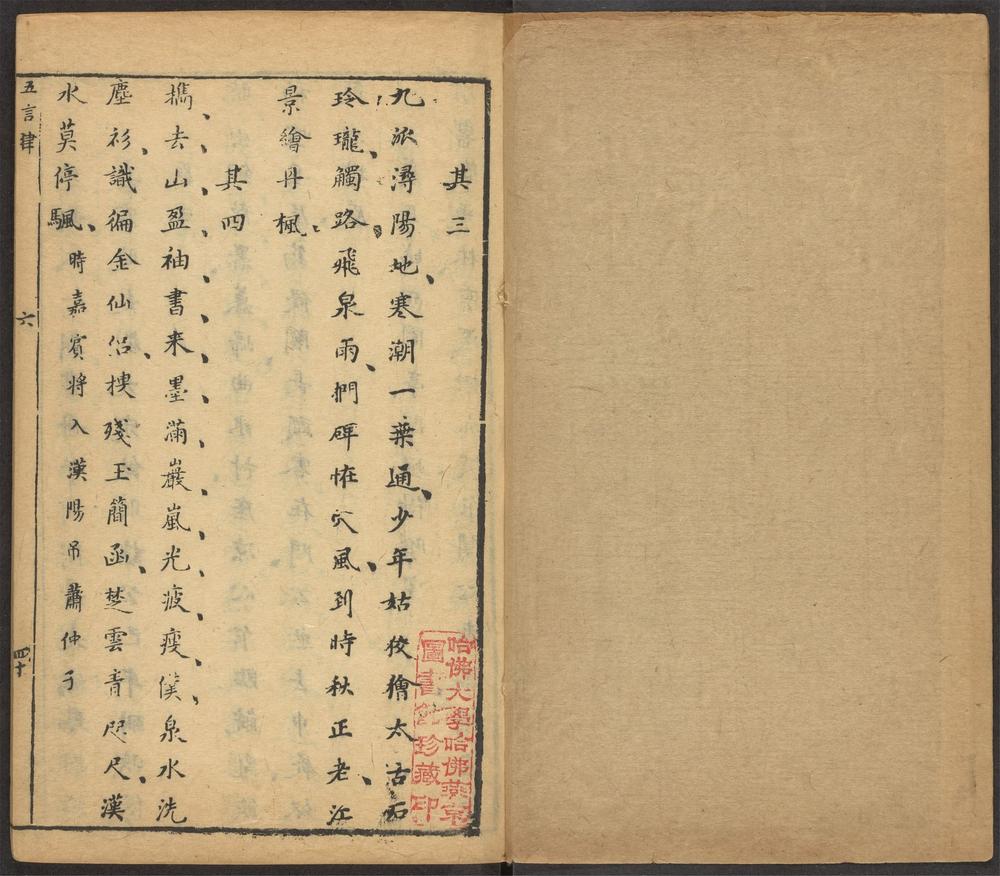 其三
九派潯陽地寒潮一葉通少年姑狡獪太古石
玲瓏觸路飛泉雨捫碑恠穴風到時秋正老江
景繪丹楓
其四
携去山盈袖書来墨滿巖嵐光疲瘦僕泉水洗
塵衫識徧金仙侶摟殘玉簡函楚雲青咫尺漢
水莫停颿時嘉賓將入漢陽吊蕭仲子
五言律
六
四十
哈佛大學哈佛燕京
圖書館珍藏印